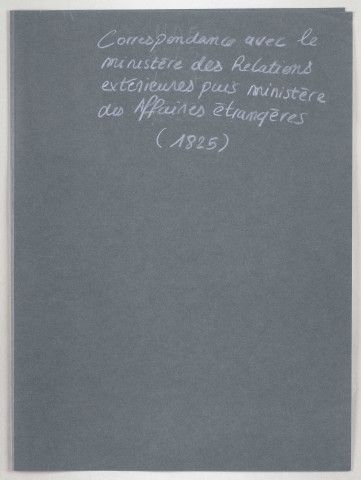 Correspondance avec le
ministère des Relations
extérieures puis ministère
des Affaires étrangères
(1825)